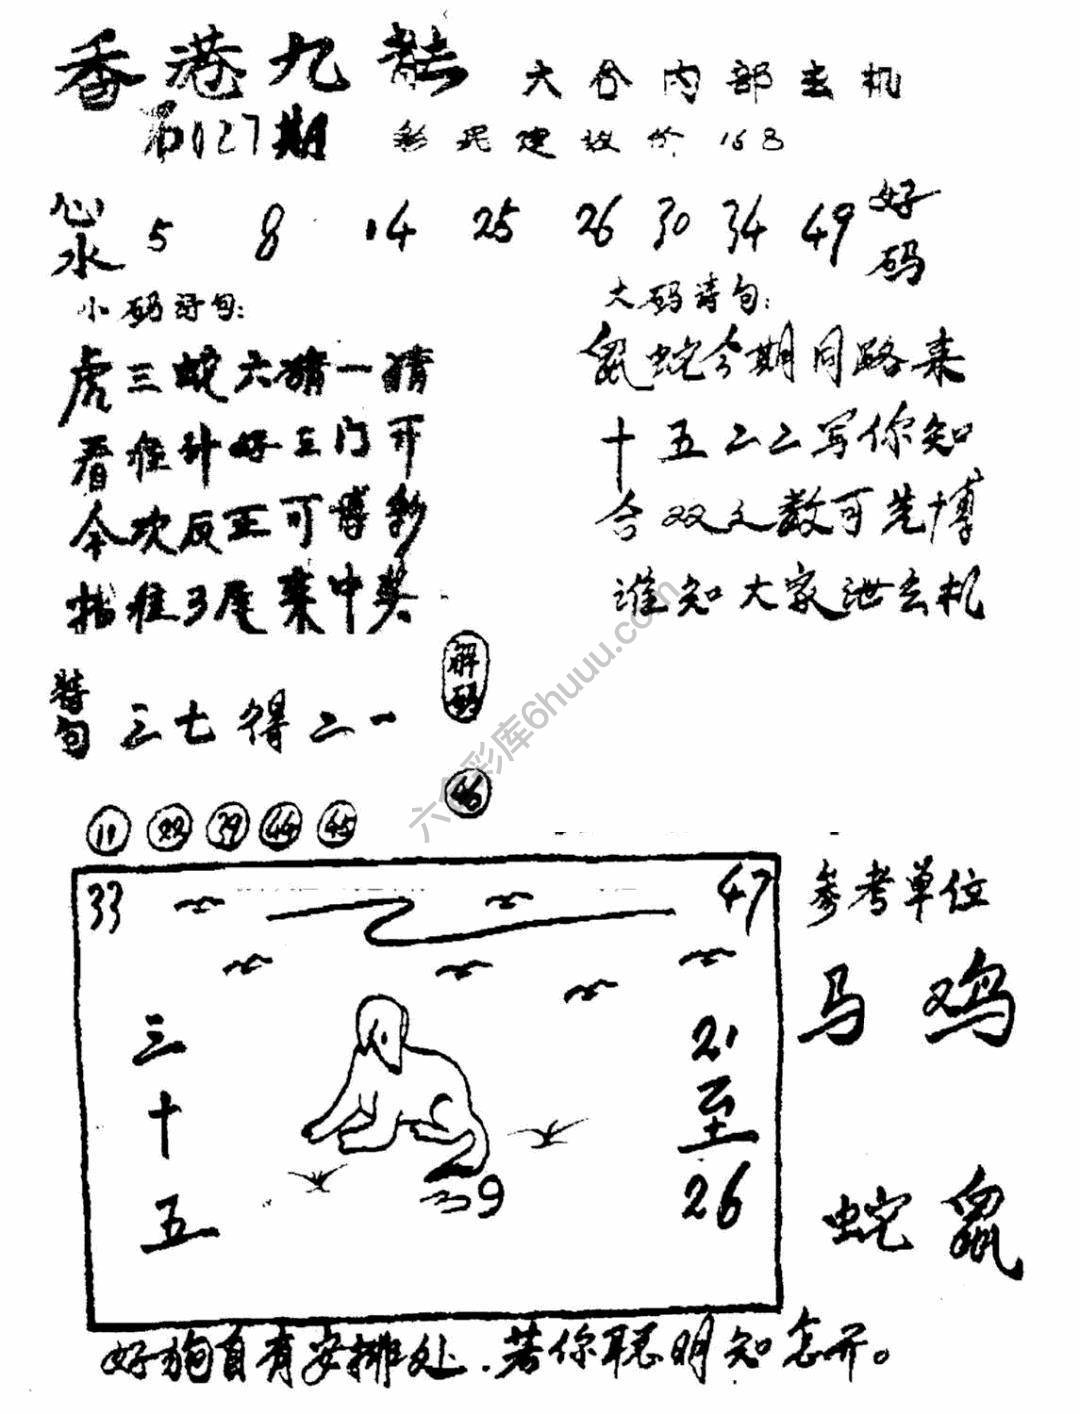 香港九龍 六合内部玄机
第127期 彩民建议价 168
心水 5 8 14 25 26 30 34 49 好码
小码诗句:
虎三蛇六猜一猜
看准计好三门开
今次反正可博彩
指准3尾来中奖
大码诗句:
鼠蛇今期同路来
十五二二写你知
合双文数可先博
谁知大家泄玄机
特句 三七得二一
解码
46
11 22 39 44 45
33 47
三十五
21至26
9
参考单位
马 鸡
蛇 鼠
好狗自有安排处.若你聪明知怎开。
六合彩库6huuu.com